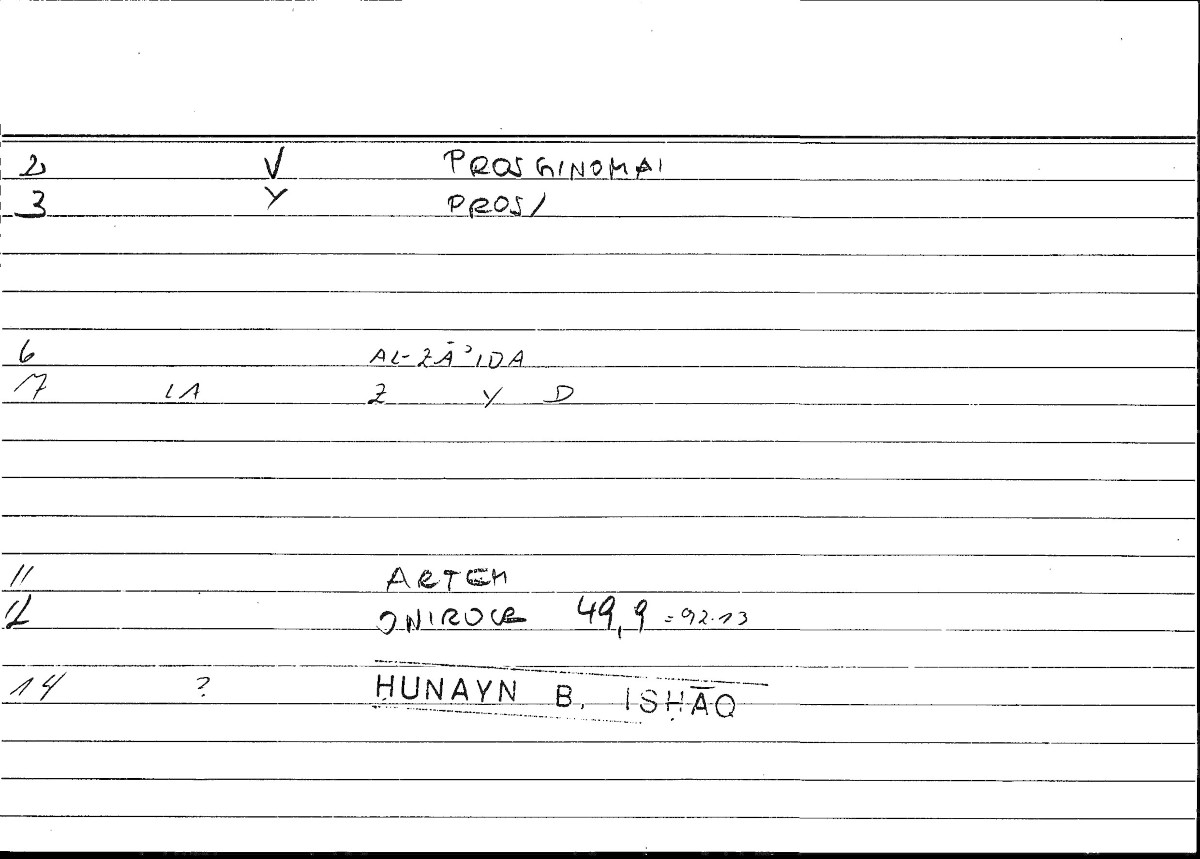 2 V PROSGINOMAI
3 Y PROS/
6 AL-ZĀʾIDA
17 IA Z Y D
11 ARTEM
12 ONIROCR 49,9 = 92.13
14 ? ḤUNAYN B. ISḤĀQ